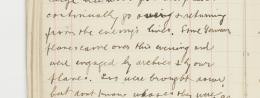 continually go over & returning
from the enemy's lines. Some German
planes came over this evening and
were engaged by archies & by our
planes. One was brought down
but dont know whose they were